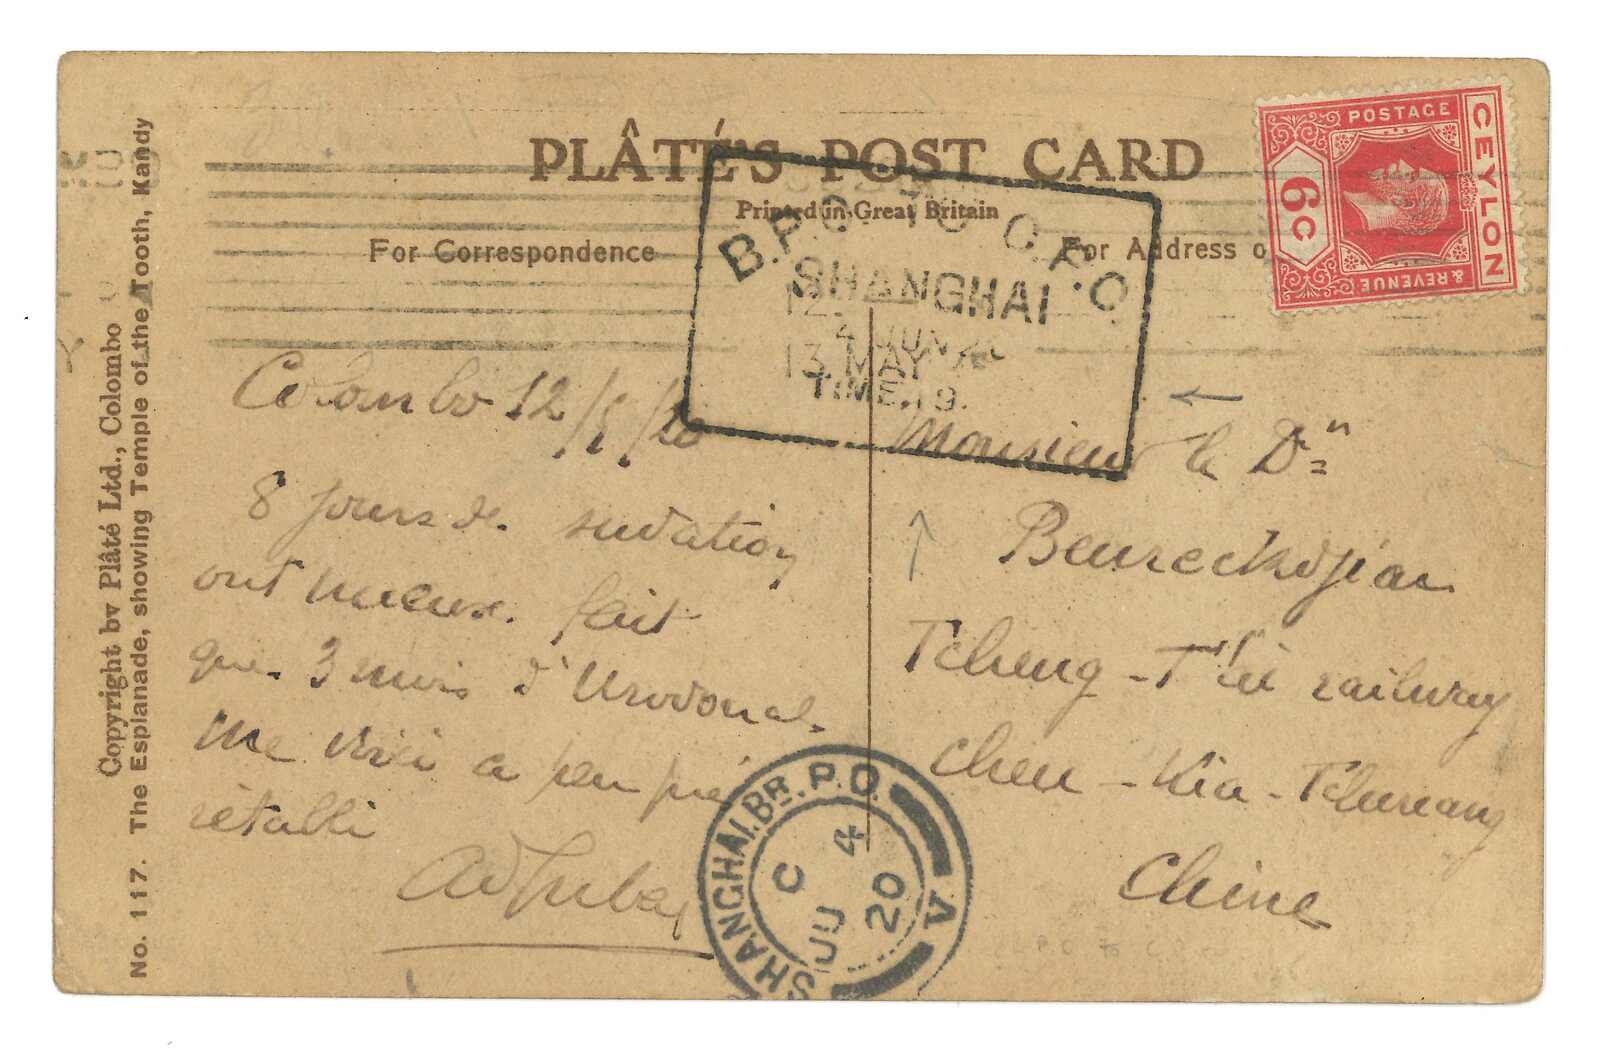 PLÂTÉ'S POST CARD
Printed in Great Britain
For Correspondence
For Address o
CEYLON
POSTAGE
& REVENUE
6c
B.P.O. TO C.P.O
SHANGHAI
4 JUN 20
13 MAY
TIME. 19.
Colombo 12/5/20
8 jours de sudation
ont mieux fait
que 3 mois d'Urodonal.
Me voici a peu près
rétabli
Monsieur le Dr
Tcheng-T'ai railway
Chen-Kia-
Chine
SHANGHAI.BR.P.O. V
C
JU 4
20
Copyright by Plâté Ltd., Colombo
No. 117. The Esplanade, showing Temple of the Tooth, Kandy